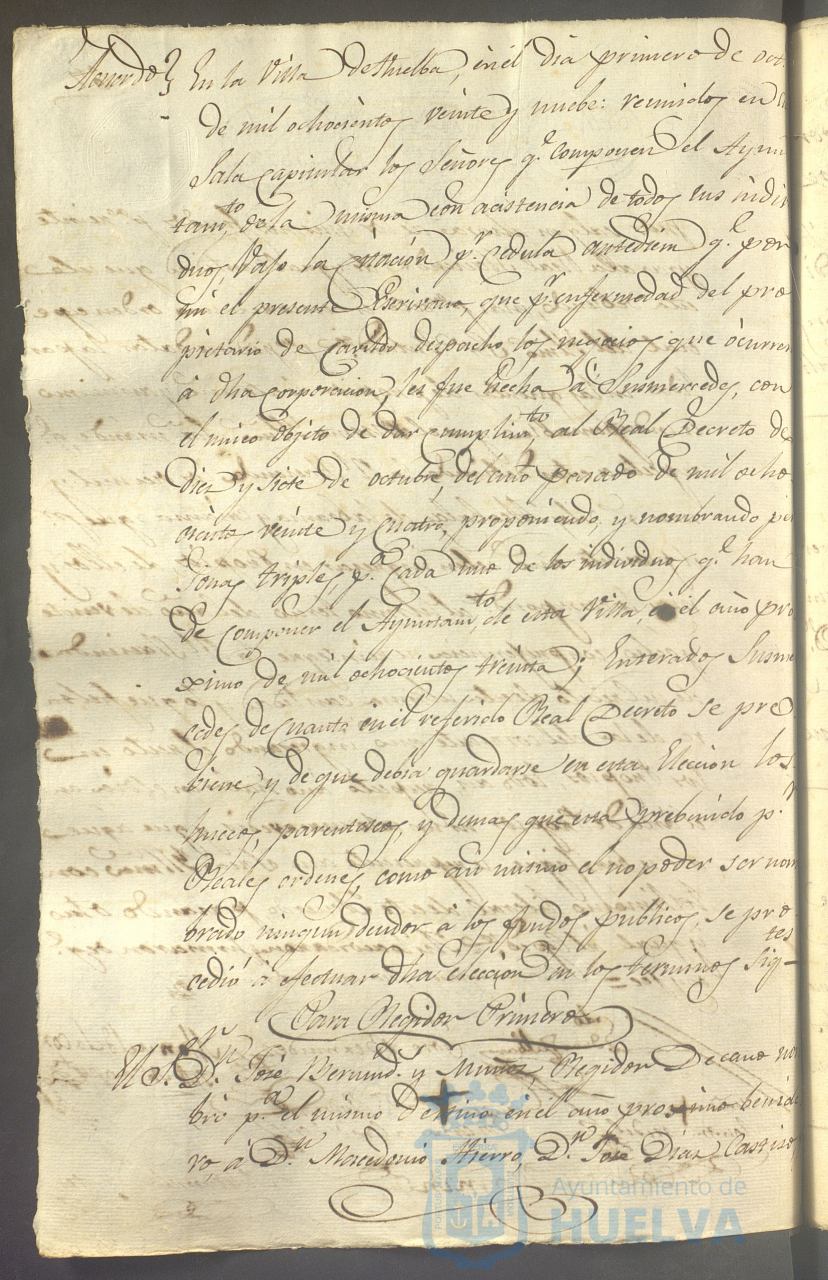 Acuerdo} En la Villa de Huelba, en el dia primero de oct
de mil ochocientos veinte y nuebe: reunidos en
Sala Capitular los Señores q.e componen el Ayun
tam.to de la misma con acistencia de todos sus indivi
duos, vajo la Citación p.r Cedula antediem q.e por
mi el presente Escrivano, que p.r enfermedad del pro
pietario de Cavildo despacho los negocios que ócurren
à dha corporacion, les fue hecha à Susmercedes, con
el unico objeto de dar cumplim.to al Real Decreto de
Diez y siete de octubre, del año pasado de mil ocho
cientos veinte y cuatro, proponiendo, y nombrando per
sonas triples, p.a Cada uno de los individuos q.e han
de componer el Ayuntam.to de esta Villa, en el año pro
ximo de mil ochocientos treinta; Enterados Susmer
cedes de cuanto en el referido Real Decreto se pre
biene, y de que debia guardarse en esta Eleccion los
huecos, parentescos, y demas que está prebenido p.r
Reales ordenes, como asi mismo el no poder ser nom
brado ningun deudor à los fondos publicos, se pro
cedió à efectuar dha elección en los terminos Sig.tes
Para Regidor Primero
El S.r D.n José Bermud.z y Muñoz, Regidor Decano nom
bró p.a el mismo destino en el año proximo benide
ro, à D.n Macedonio Hierro, D.n José Diaz Castizo,
Ayuntamiento de
HUELVA